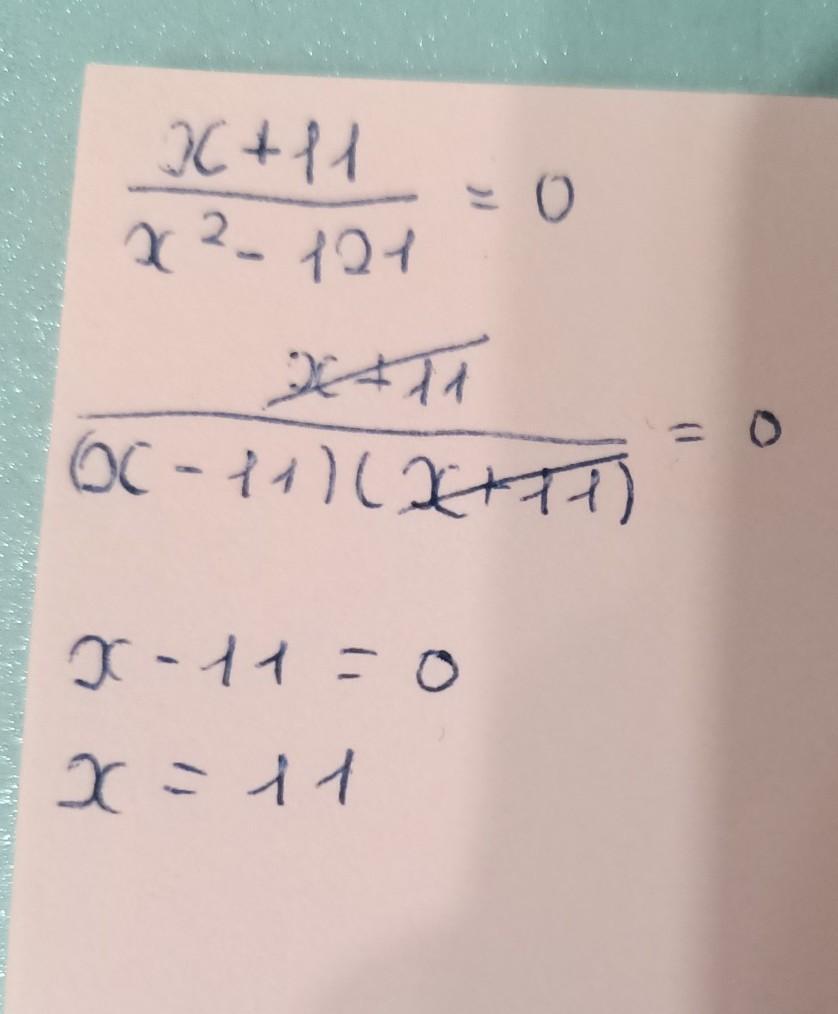 x+11
x² - 121 = 0
x+11
(x - 11)(x+11) = 0
x - 11 = 0
x = 11